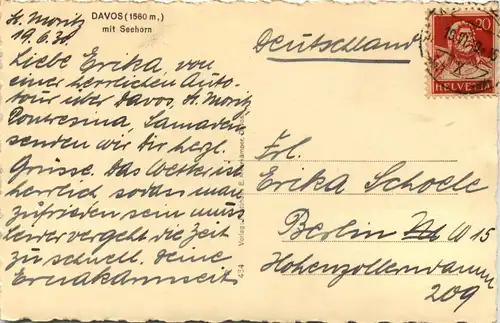 St. Moritz
19.6.30.
DAVOS (1560 m.)
mit Seehorn
Liebe Erika, von
einer herrlichen Auto-
tour über Davos, St. Moritz
Pontresina, Samaden
senden wir Dir herzl.
Grüsse. Das Wetter ist
herrlich sodass man
zufrieden sein muss
Leider vergeht die Zeit
zu schnell. Deine
Deutschland
20
HELVETIA
Frl.
Erika Schoele
Berlin W 15
Hohenzollerndamm
209
434 Verlag